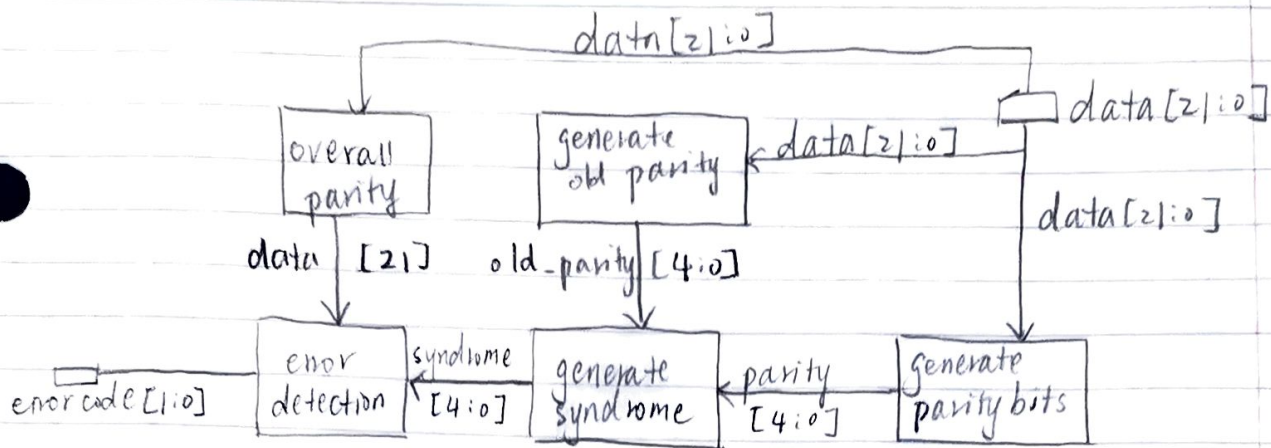 data[21:0]
data[21:0]
overall
parity
generate
old parity
data[21:0]
data[21:0]
data [21]
old_parity [4:0]
error
detection
syndrome
[4:0]
generate
syndrome
parity
[4:0]
generate
parity bits
error code [1:0]